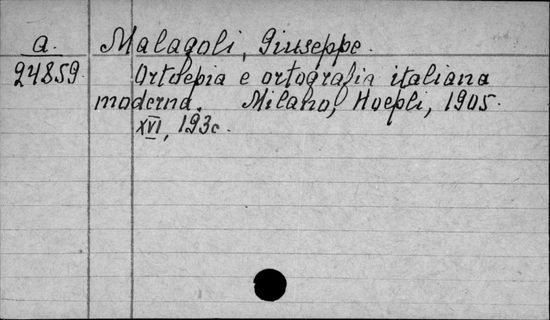 a. Malagoli, Giuseppe.
24859. Ortoepia e ortografia italiana
moderna. Milano, Hoepli, 1905.
XVI, 193 c.